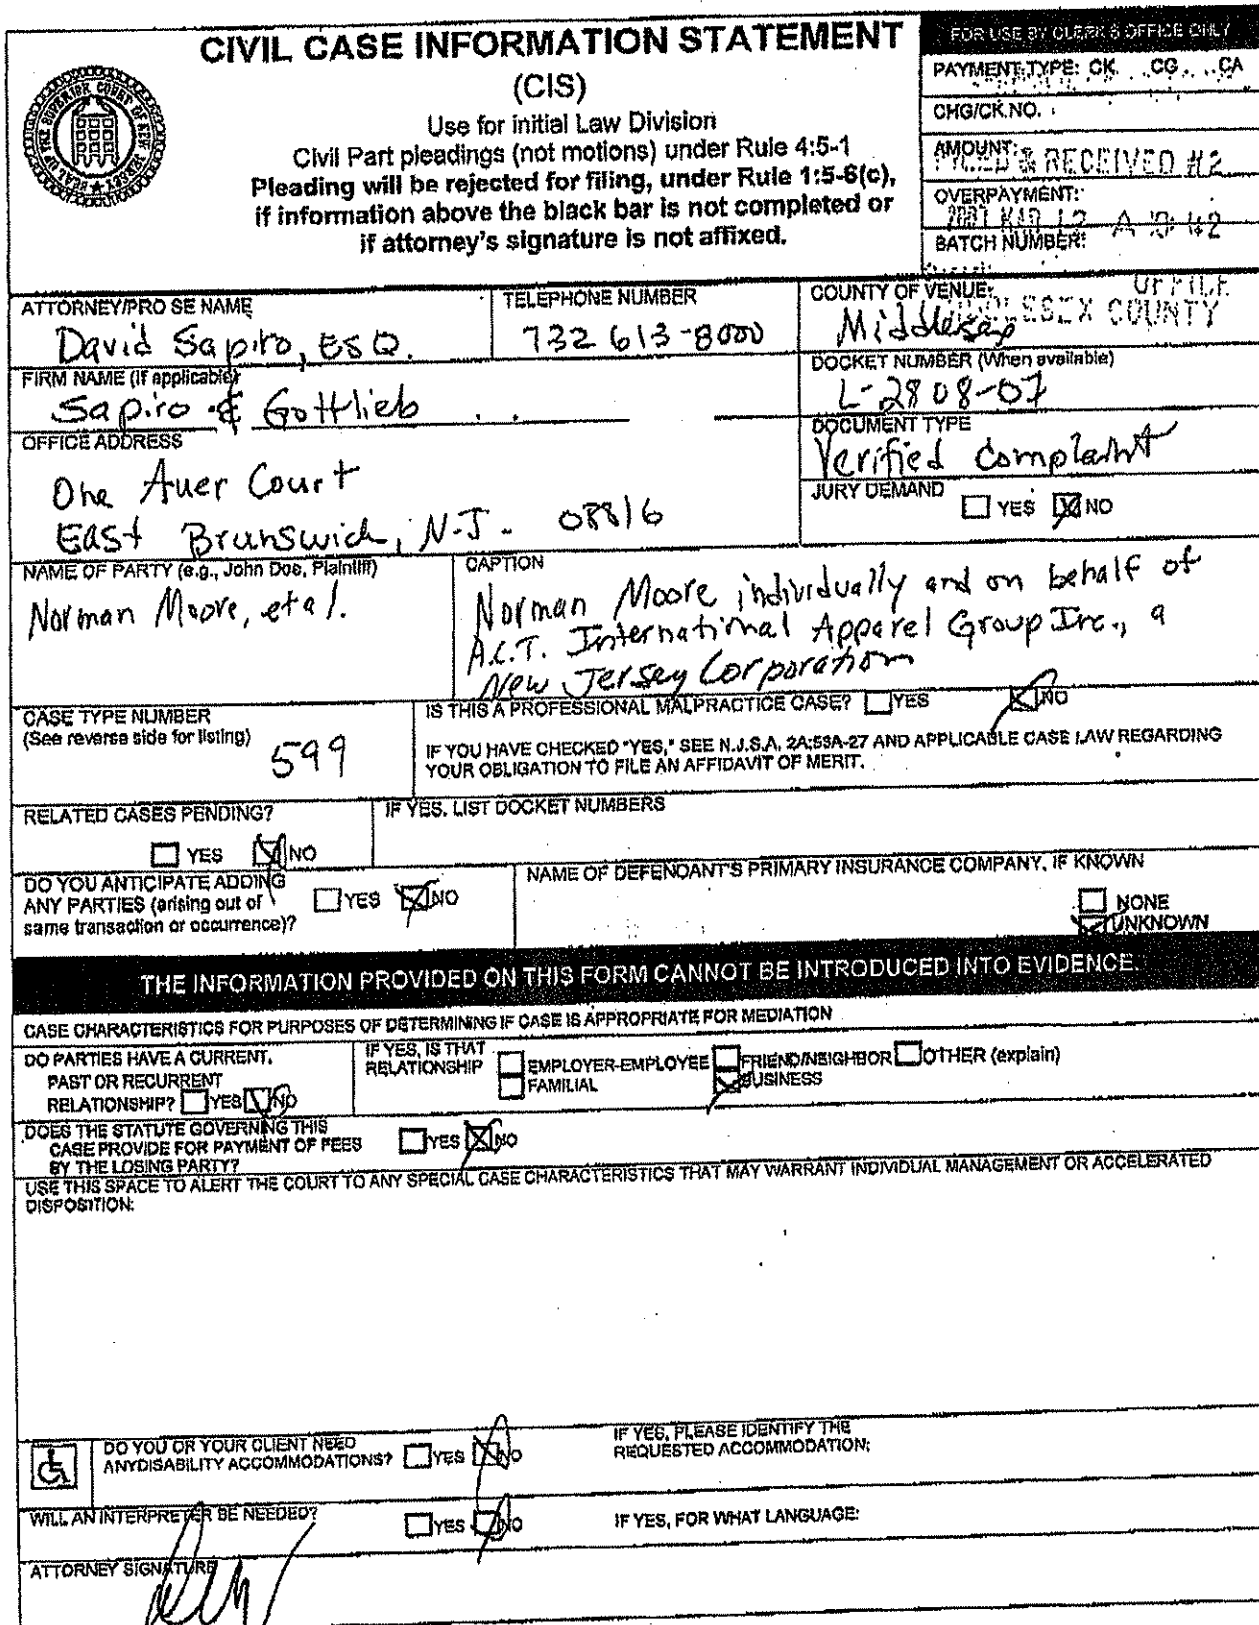 CIVIL CASE INFORMATION STATEMENT
(CIS)
Use for initial Law Division
Civil Part pleadings (not motions) under Rule 4:5-1
Pleading will be rejected for filing, under Rule 1:5-6(c),
if information above the black bar is not completed or
if attorney's signature is not affixed.
SEAL OF THE SUPERIOR COURT OF NEW JERSEY
FOR USE BY CLERK'S OFFICE ONLY
PAYMENT TYPE: CK CG CA
CHG/CK NO.
AMOUNT:
RECEIVED #2
OVERPAYMENT:
BATCH NUMBER:
ATTORNEY/PRO SE NAME
David Sapiro, ESQ.
TELEPHONE NUMBER
732 613-8000
COUNTY OF VENUE:
Middlesex
COUNTY
FIRM NAME (If applicable)
Sapiro & Gottlieb
DOCKET NUMBER (When available)
L-2808-07
OFFICE ADDRESS
One Auer Court
East Brunswick, N.J. 08816
DOCUMENT TYPE
Verified Complaint
JURY DEMAND
YES NO
NAME OF PARTY (e.g., John Doe, Plaintiff)
Norman Moore, et al.
CAPTION
Norman Moore individually and on behalf of
A.C.T. International Apparel Group Inc., a
New Jersey Corporation
CASE TYPE NUMBER
(See reverse side for listing)
599
IS THIS A PROFESSIONAL MALPRACTICE CASE? YES NO
IF YOU HAVE CHECKED "YES," SEE N.J.S.A. 2A:53A-27 AND APPLICABLE CASE LAW REGARDING
YOUR OBLIGATION TO FILE AN AFFIDAVIT OF MERIT.
RELATED CASES PENDING?
YES NO
IF YES, LIST DOCKET NUMBERS
DO YOU ANTICIPATE ADDING
ANY PARTIES (arising out of
same transaction or occurrence)?
YES NO
NAME OF DEFENDANT'S PRIMARY INSURANCE COMPANY, IF KNOWN
NONE
UNKNOWN
THE INFORMATION PROVIDED ON THIS FORM CANNOT BE INTRODUCED INTO EVIDENCE.
CASE CHARACTERISTICS FOR PURPOSES OF DETERMINING IF CASE IS APPROPRIATE FOR MEDIATION
DO PARTIES HAVE A CURRENT,
PAST OR RECURRENT
RELATIONSHIP? YES NO
IF YES, IS THAT
RELATIONSHIP
EMPLOYER-EMPLOYEE FRIEND/NEIGHBOR OTHER (explain)
FAMILIAL BUSINESS
DOES THE STATUTE GOVERNING THIS
CASE PROVIDE FOR PAYMENT OF FEES
BY THE LOSING PARTY?
YES NO
USE THIS SPACE TO ALERT THE COURT TO ANY SPECIAL CASE CHARACTERISTICS THAT MAY WARRANT INDIVIDUAL MANAGEMENT OR ACCELERATED
DISPOSITION:
DO YOU OR YOUR CLIENT NEED
ANYDISABILITY ACCOMMODATIONS? YES NO
IF YES, PLEASE IDENTIFY THE
REQUESTED ACCOMMODATION:
WILL AN INTERPRETER BE NEEDED? YES NO
IF YES, FOR WHAT LANGUAGE:
ATTORNEY SIGNATURE